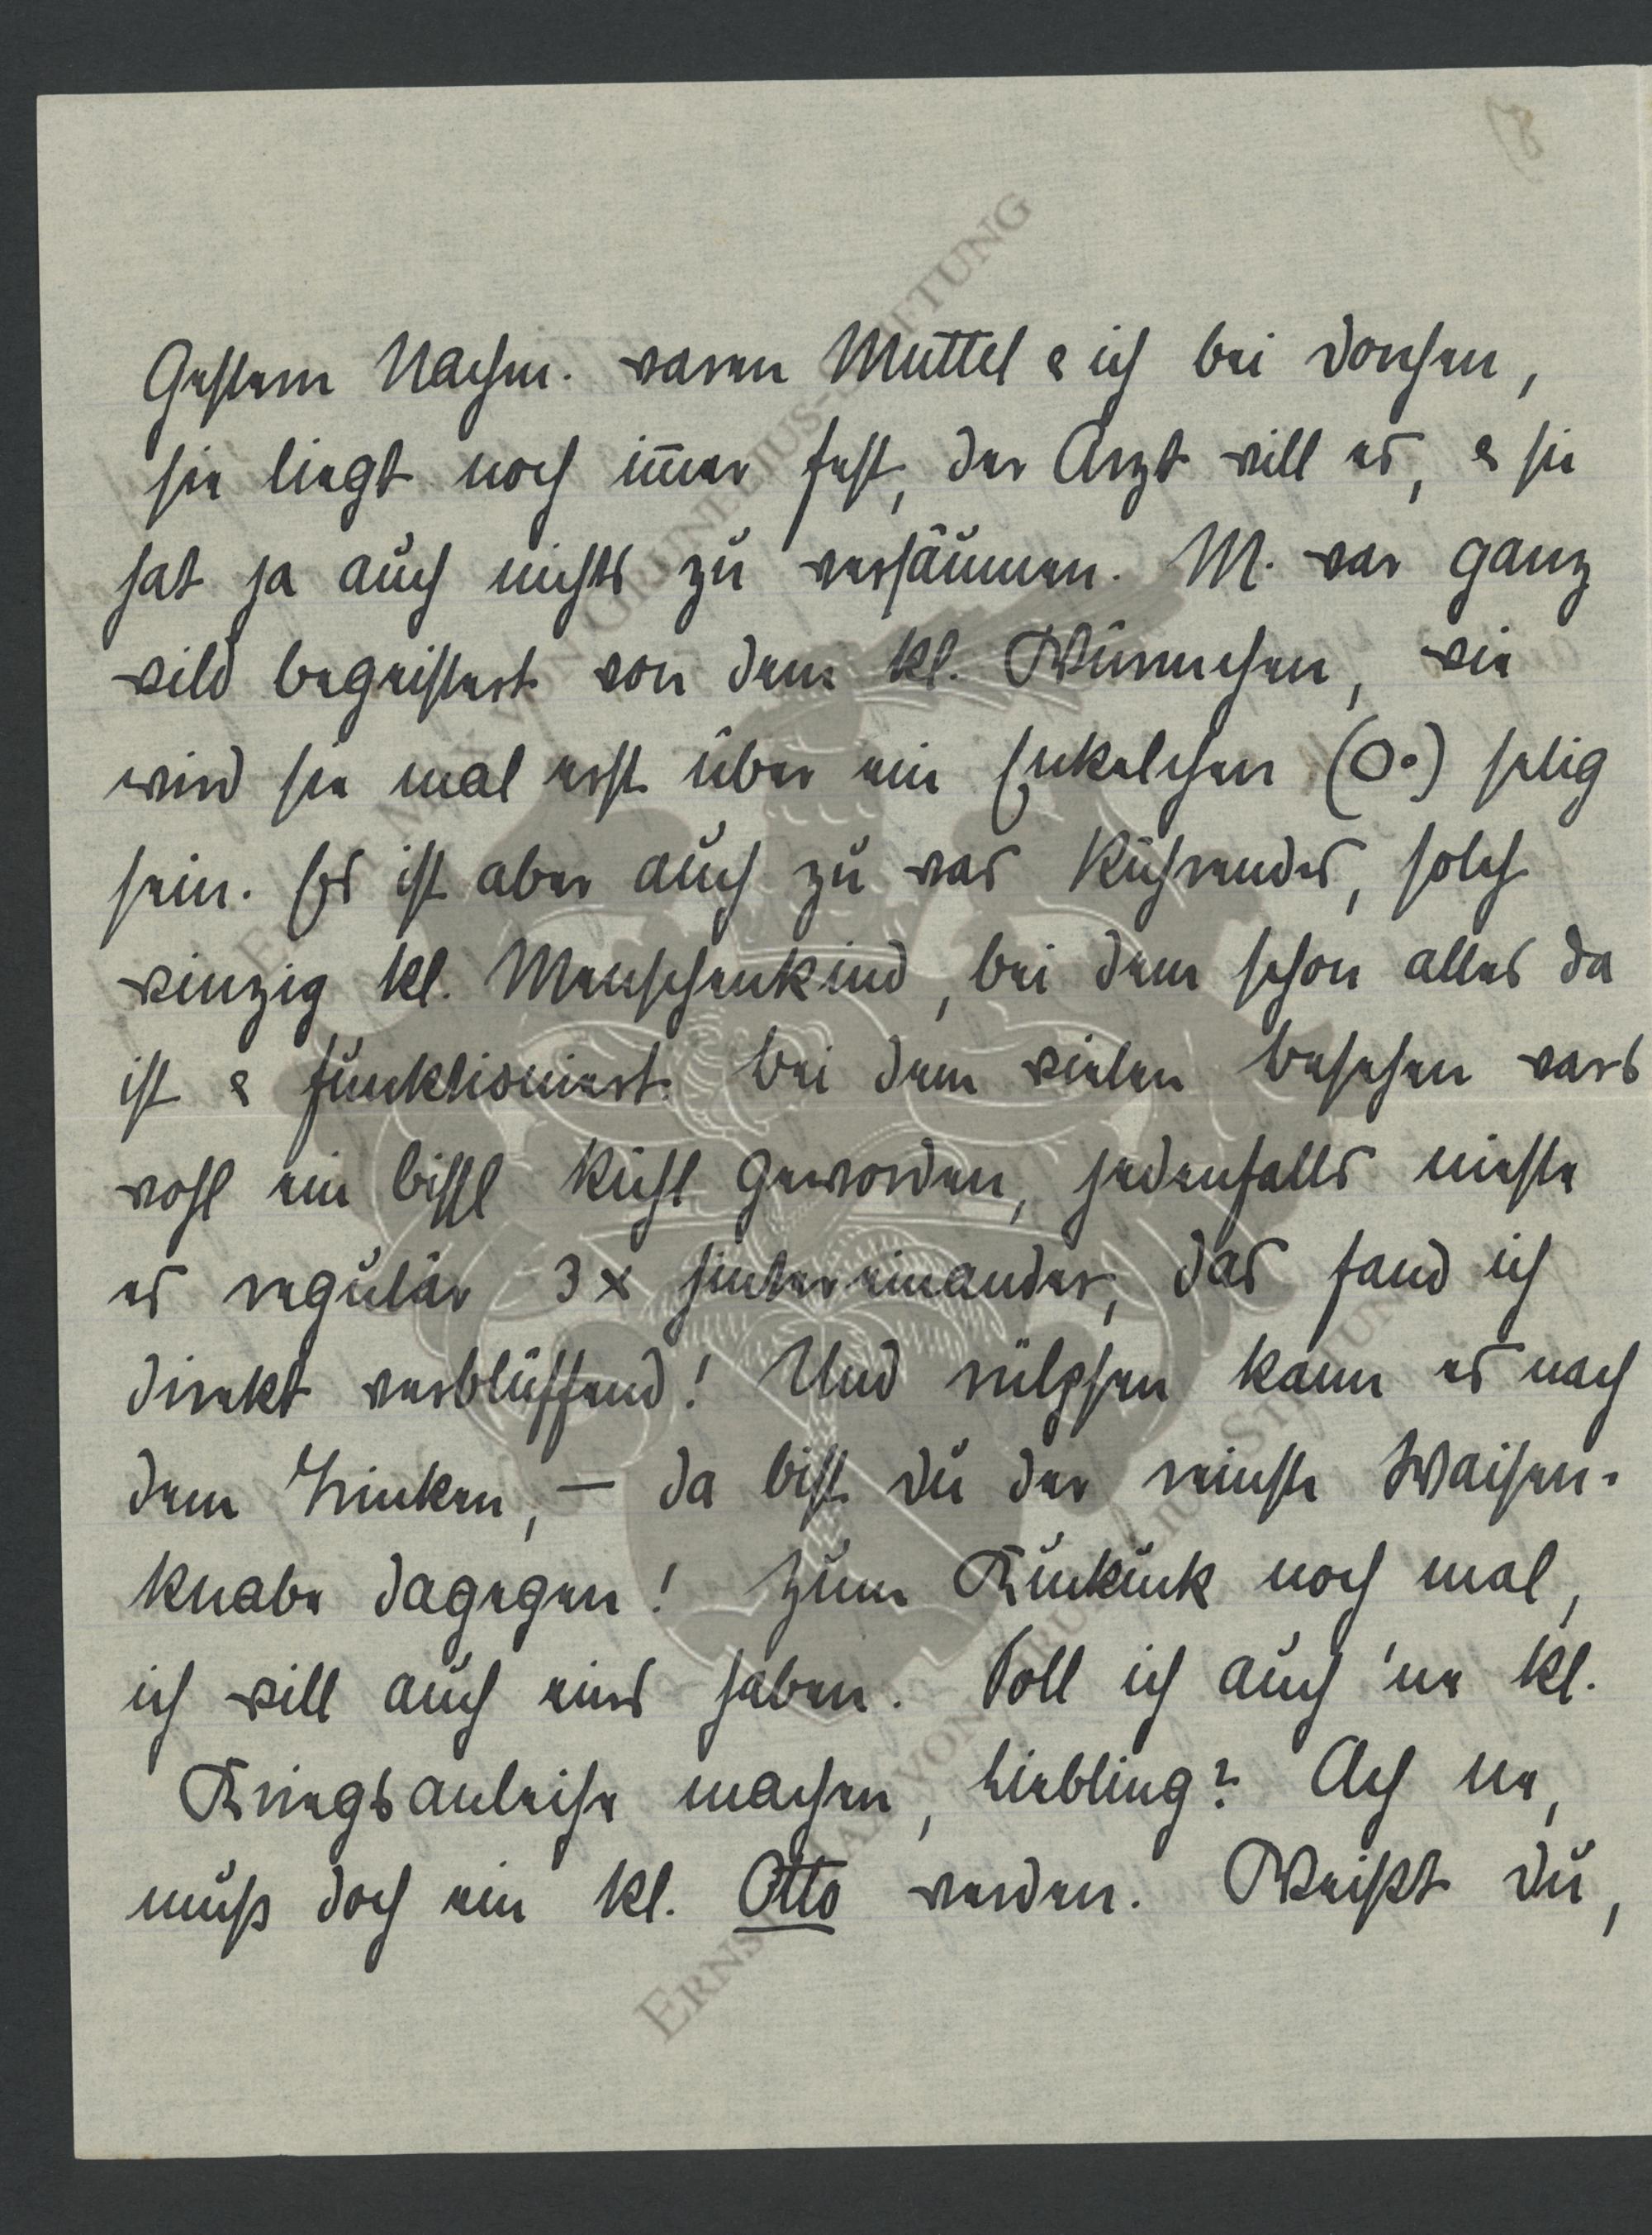 Gestern Nachm. waren Muttel & ich bei Dorchen,
sie liegt noch im̅er fest, der Arzt will es, & sie
hat ja auch nichts zu versäumen. M. war ganz
wild begeistert von dem kl. Würmchen, wie
wird sie mal erst über ein Enkelchen (O.) selig
sein. Es ist aber auch zu was Rührendes, solch
winzig kl. Menschenkind, bei dem schon alles da
ist & funktioniert. Bei dem vielen Besehen wars
wohl ein bissl kühl geworden, jedenfalls nieste
es regulär 3x hintereinander, das fand ich
direkt verblüffend! Und rülpsen kann es nach
dem Trinken, — da bist Du der reinste Waisen-
knabe dagegen! Zum Kuckuck noch mal,
ich will auch eins haben. Soll ich auch 'ne kl.
Kriegsanleihe machen, Liebling? Ach ne,
muß doch ein kl. Otto werden. Weißt Du,
ERNST MAX VON GRUNELIUS-STIFTUNG
ERNST MAX VON GRUNELIUS-STIFTUNG